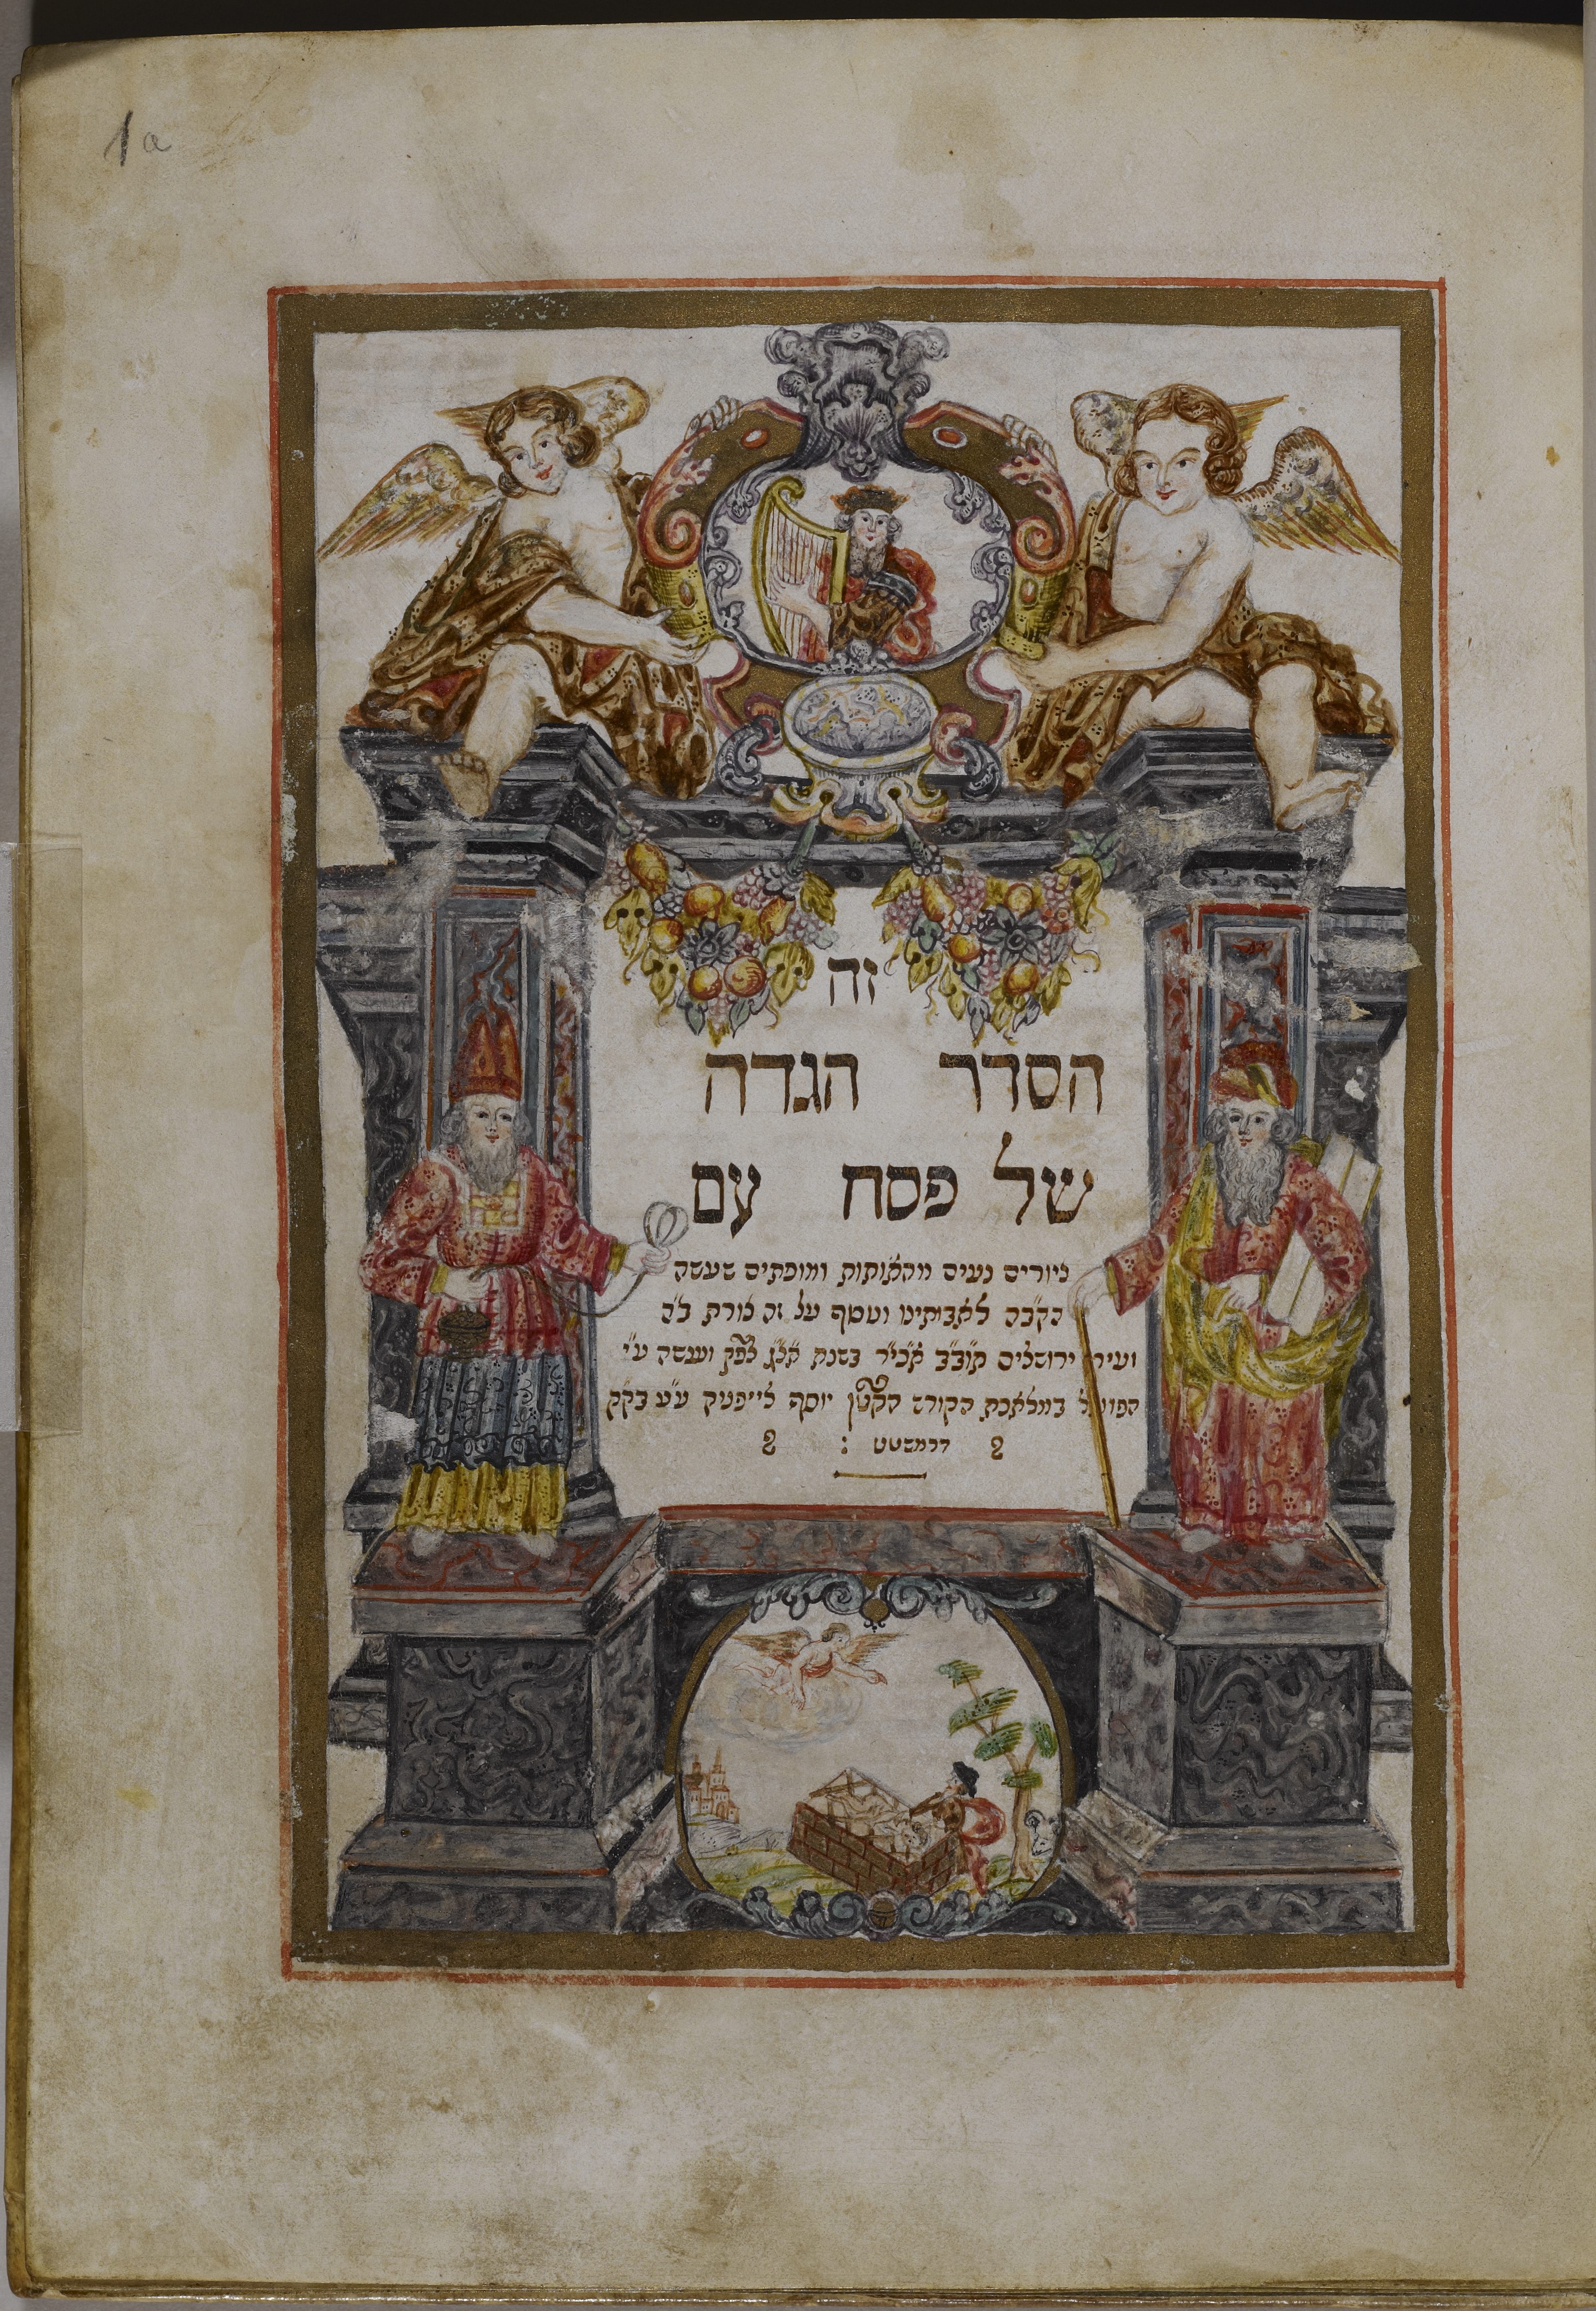 1a
זה
הסדר הגדה
של פסח עם
ציורים נעים מהאותות ומופתים שעשה
הקב״ה לאבותינו ונוסף על זה צורת ב״ה
ועיר ירושלים תוב״ב אכי״ר בשנת לפ״ק ונעשה ע״י
הפועל במלאכת הקודש הקטן יוסף לייפניק ע״ע בק״ק
דרמשטט :